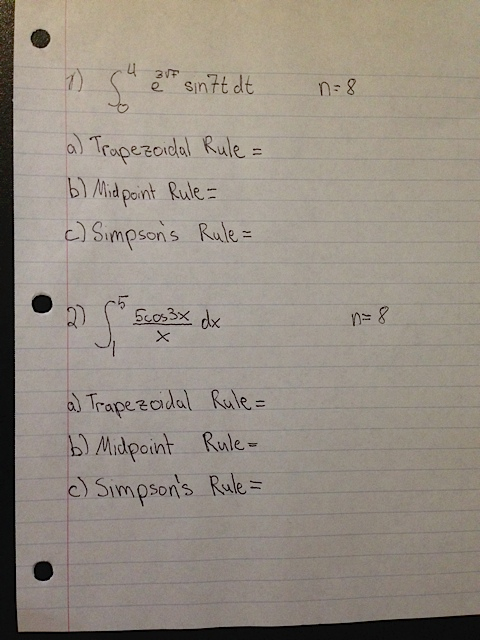 1) ∫₀⁴ e^(3√7) sin7t dt n=8
a) Trapezoidal Rule =
b) Midpoint Rule=
c) Simpson's Rule=
2) ∫₁⁵ 5cos3x/x dx n=8
a) Trapezoidal Rule=
b) Midpoint Rule=
c) Simpson's Rule=